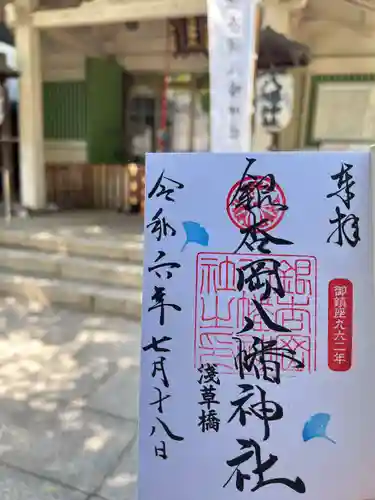 奉拝
銀杏岡八幡神社
御鎮座九六二年
浅草橋
令和六年七月十八日